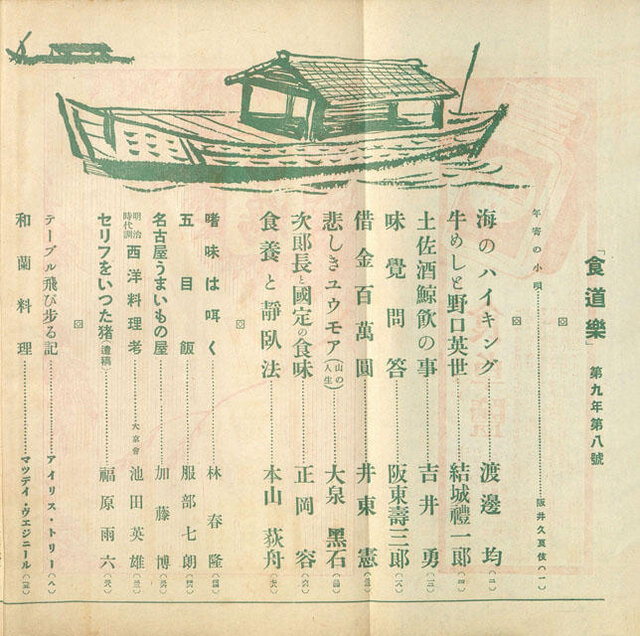 「食道樂」 第九年第八號
年寄の小唄 阪井久良伎(一)
海のハイキング 渡邊均(二)
牛めしと野口英世 結城禮一郎(四)
土佐酒鯨飮の事 吉井勇
味覺問答 阪東壽三郎
借金百萬圓 井東憲
悲しきユウモア(山の人生) 大泉黑石
次郎長と國定の食味 正岡容
食養と靜臥法 本山荻舟
嗜味は呟く 林春隆
五目飯 服部七朗
名古屋うまいもの屋 加藤博
明治時代訓 西洋料理考 大京會 池田英雄
セリフをいつた猪(遺稿) 福原雨六
テーブル飛び歩る記 アイリス・トリー(八)
和蘭料理 マツデイ・ヴエジニール